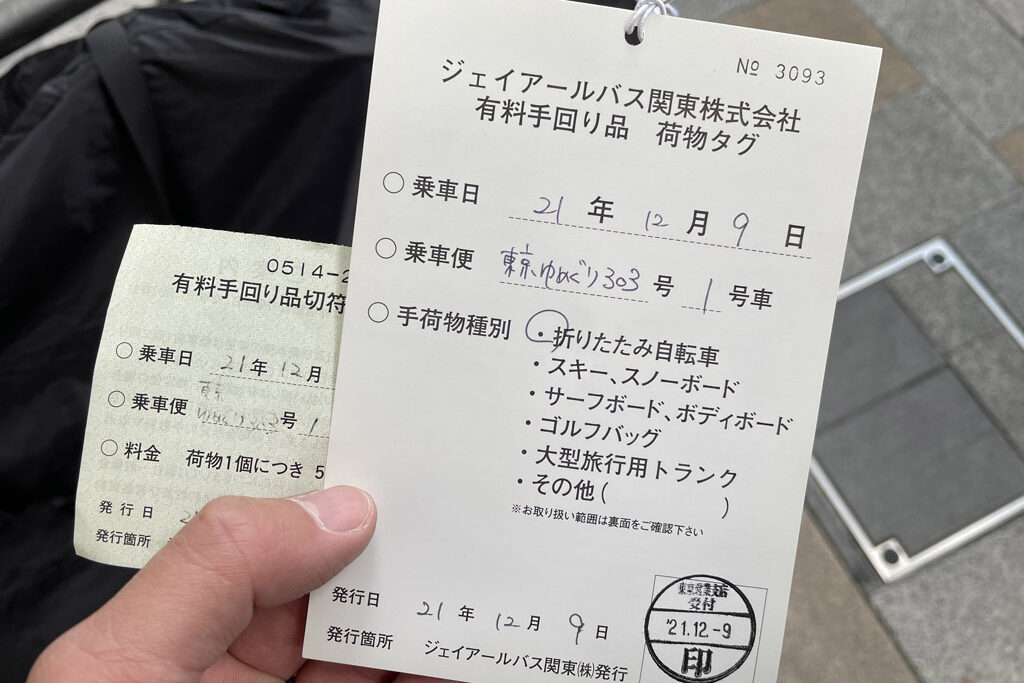 № 3093
ジェイアールバス関東株式会社
有料手回り品 荷物タグ
○ 乗車日 21 年 12 月 9 日
○ 乗車便 東京ゆめぐり303 号 1 号車
○ 手荷物種別 ・折りたたみ自転車
・スキー、スノーボード
・サーフボード、ボディボード
・ゴルフバッグ
・大型旅行用トランク
・その他( )
※お取り扱い範囲は裏面をご確認下さい
発行日 21 年 12 月 9 日
発行箇所 ジェイアールバス関東(株)発行
受付
'21.12.-9
印
0514-2
有料手回り品切符
○ 乗車日 21年 12月
○ 乗車便 東京
ゆめぐり303号 1
○ 料金 荷物1個につき 5
発行日 2
発行箇所